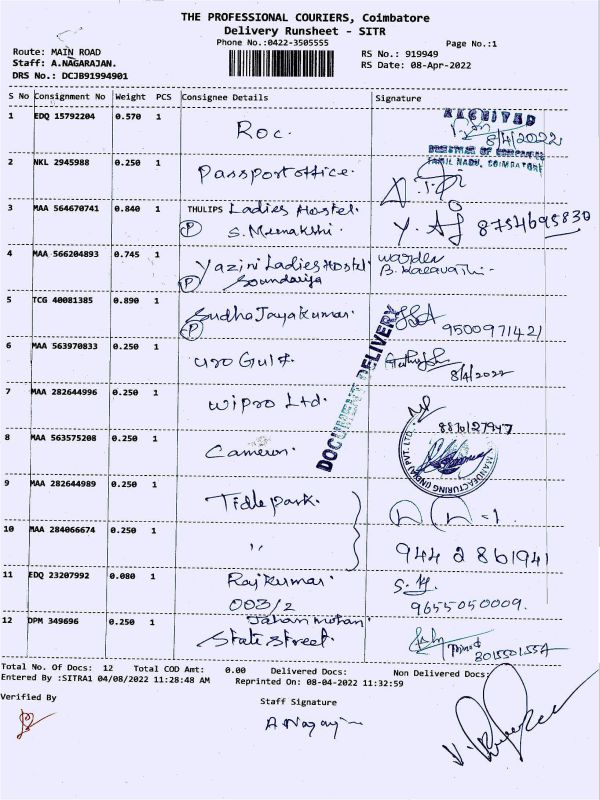 THE PROFESSIONAL COURIERS, Coimbatore
Delivery Runsheet - SITR
Phone No.:0422-3505555
Page No.:1
Route: MAIN ROAD
Staff: A.NAGARAJAN.
DRS No.: DCJB91994901
RS No.: 919949
RS Date: 08-Apr-2022
S No Consignment No Weight PCS Consignee Details Signature
1 EDQ 15792204 0.570 1 Roc.
RECEIVED
8/4/2022
TAMIL NADU, COIMBATORE
2 NKL 2945988 0.250 1 Passport office.
3 MAA 564670741 0.840 1 THULIPS Ladies Hostel.
P S. Meenakshi. 8754695830
4 MAA 566204893 0.745 1 Yazini Ladies Hostel warden
P Soundariya B. Kalavathi
5 TCG 40081385 0.890 1 Sudha Jayakumar.
P 9500971421
6 MAA 563970833 0.250 1 Gulf.
8/4/2022
DOCUMENT DELIVERY
7 MAA 282644996 0.250 1 Wipro Ltd.
8 MAA 563575208 0.250 1 Cameron.
MANUFACTURING (INDIA) PVT. LTD.
9 MAA 282644989 0.250 1 Tidle park.
10 MAA 284066674 0.250 1 ,, 944 2 861941
11 EDQ 23207992 0.080 1 Rajkumar
003/2 9655050009.
12 DPM 349696 0.250 1 Jahan mohan
State Street.
Total No. Of Docs: 12 Total COD Amt: 0.00 Delivered Docs: Non Delivered Docs:
Entered By :SITRA1 04/08/2022 11:28:48 AM Reprinted On: 08-04-2022 11:32:59
Verified By
Staff Signature
A Nagaraj